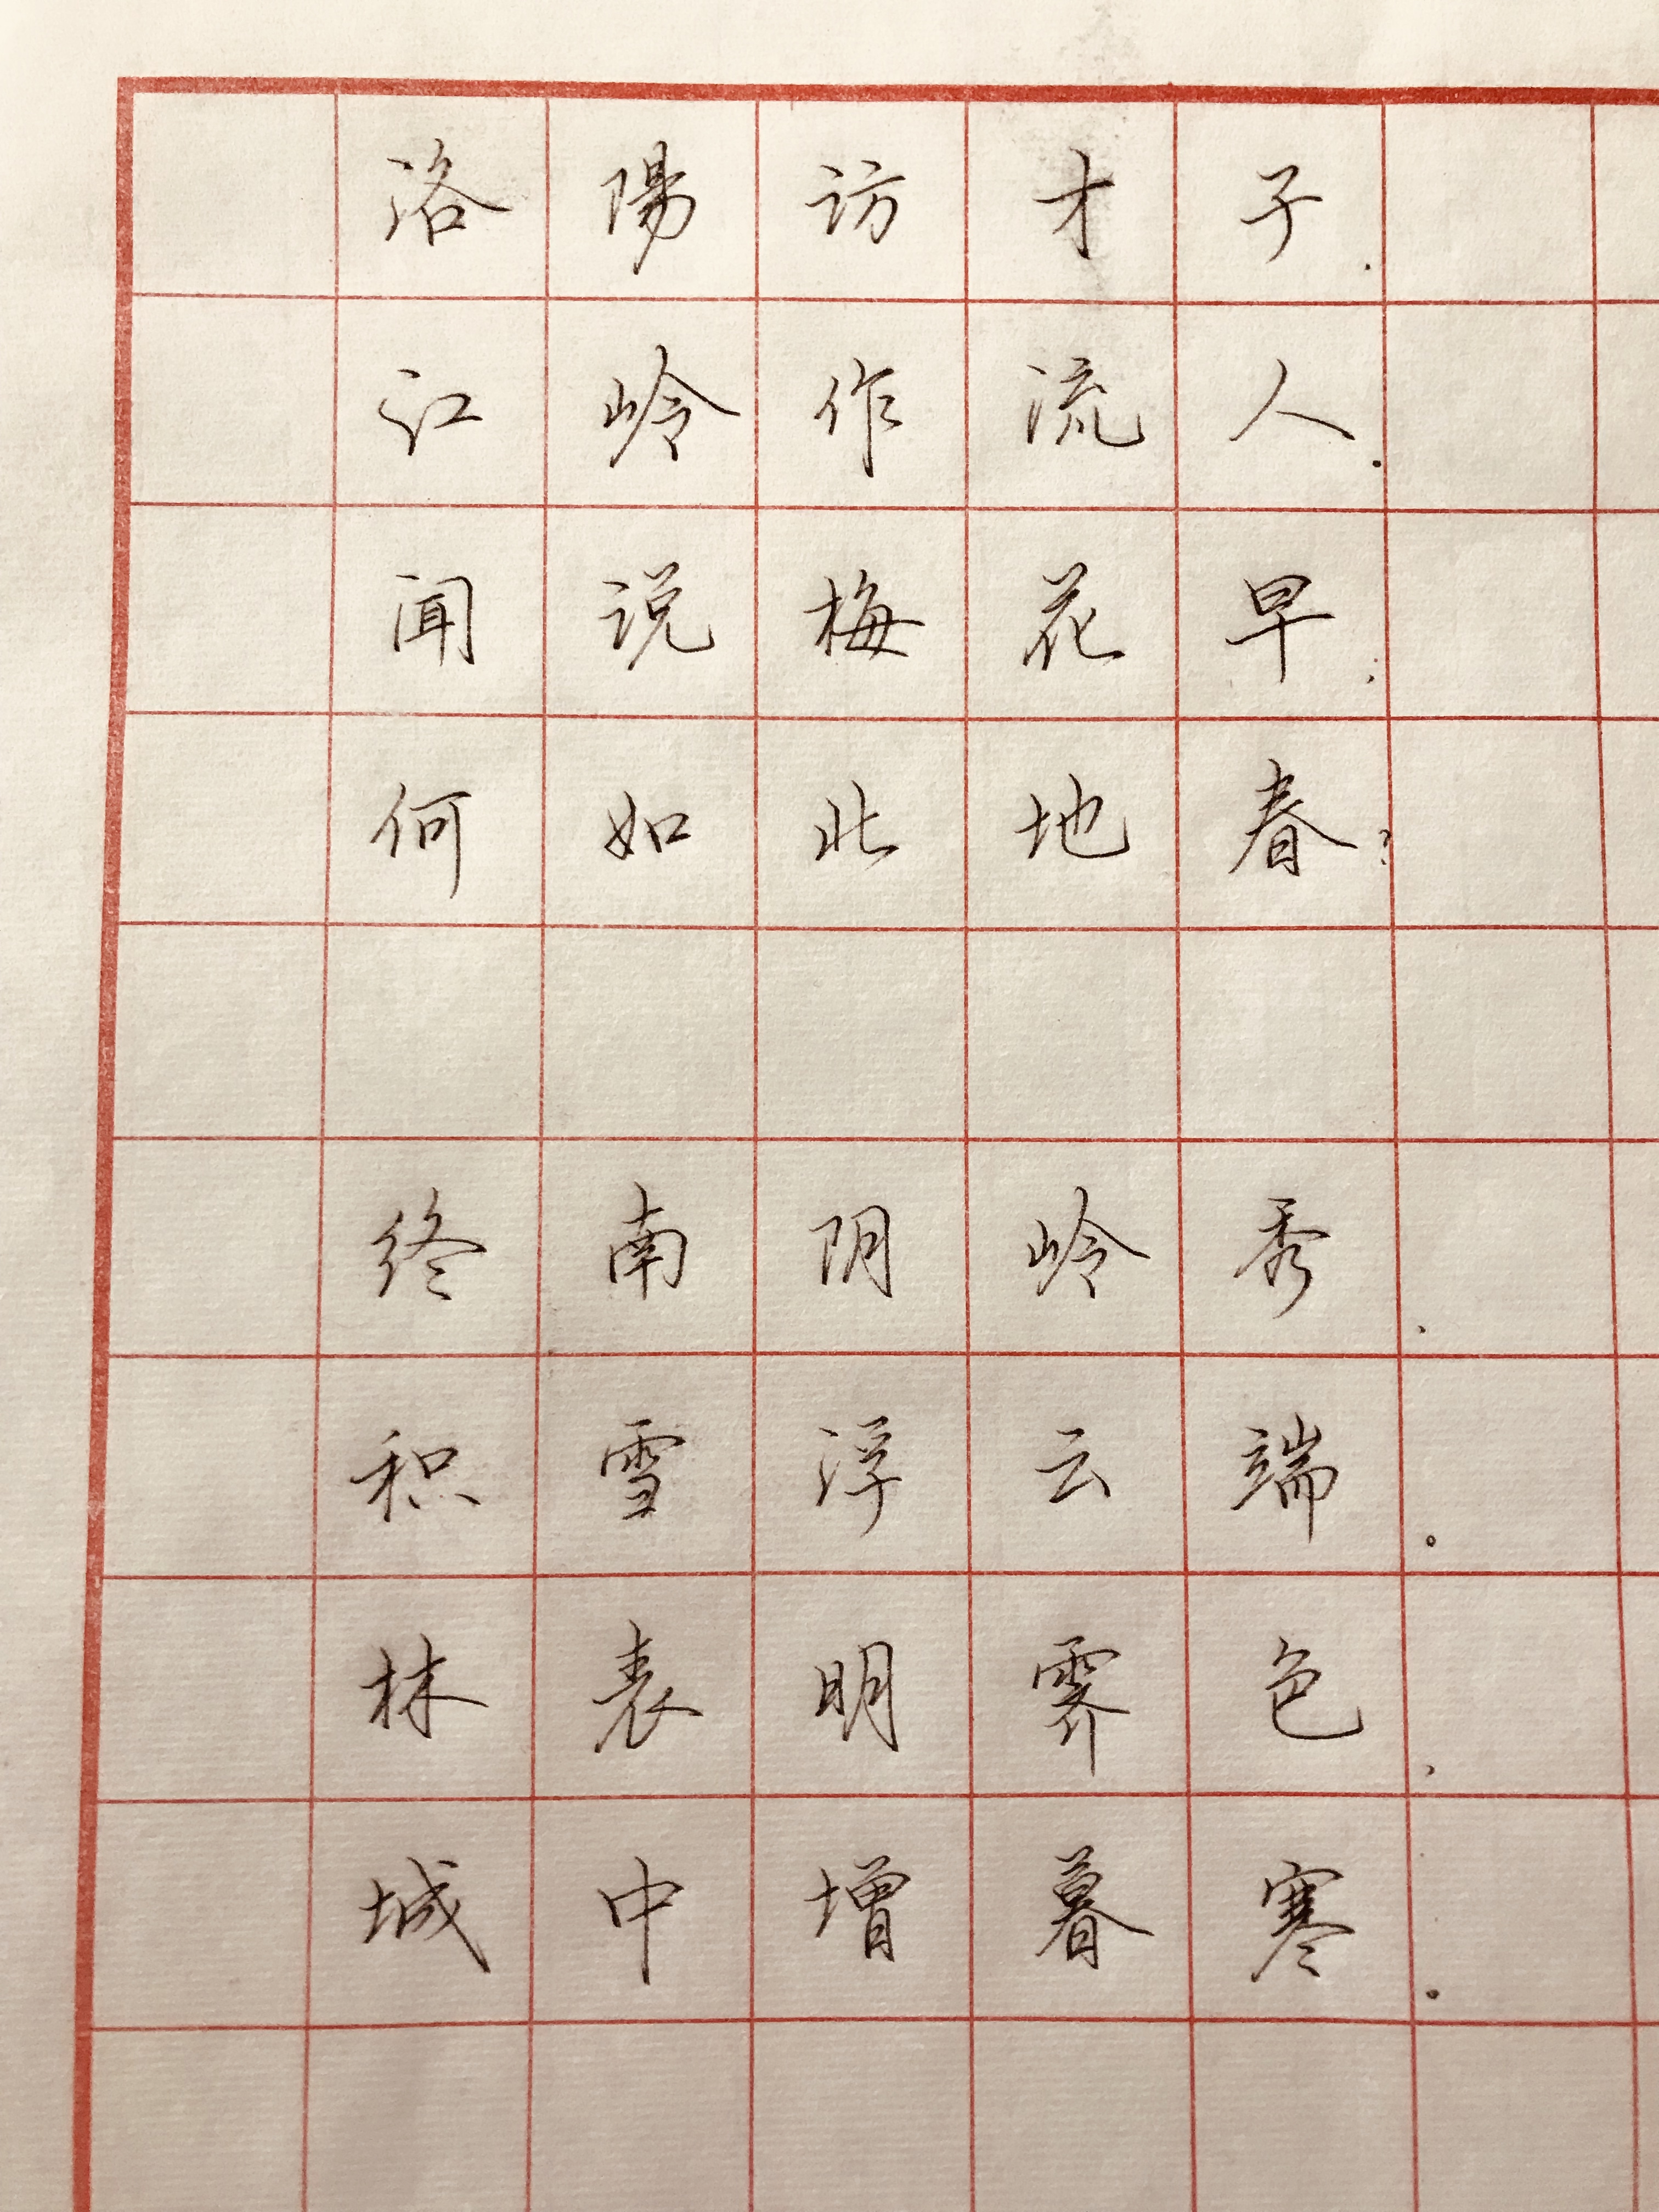 洛陽访才子，
江岭作流人。
闻说梅花早；
何如北地春？
终南阴岭秀，
积雪浮云端。
林表明霁色，
城中增暮寒。